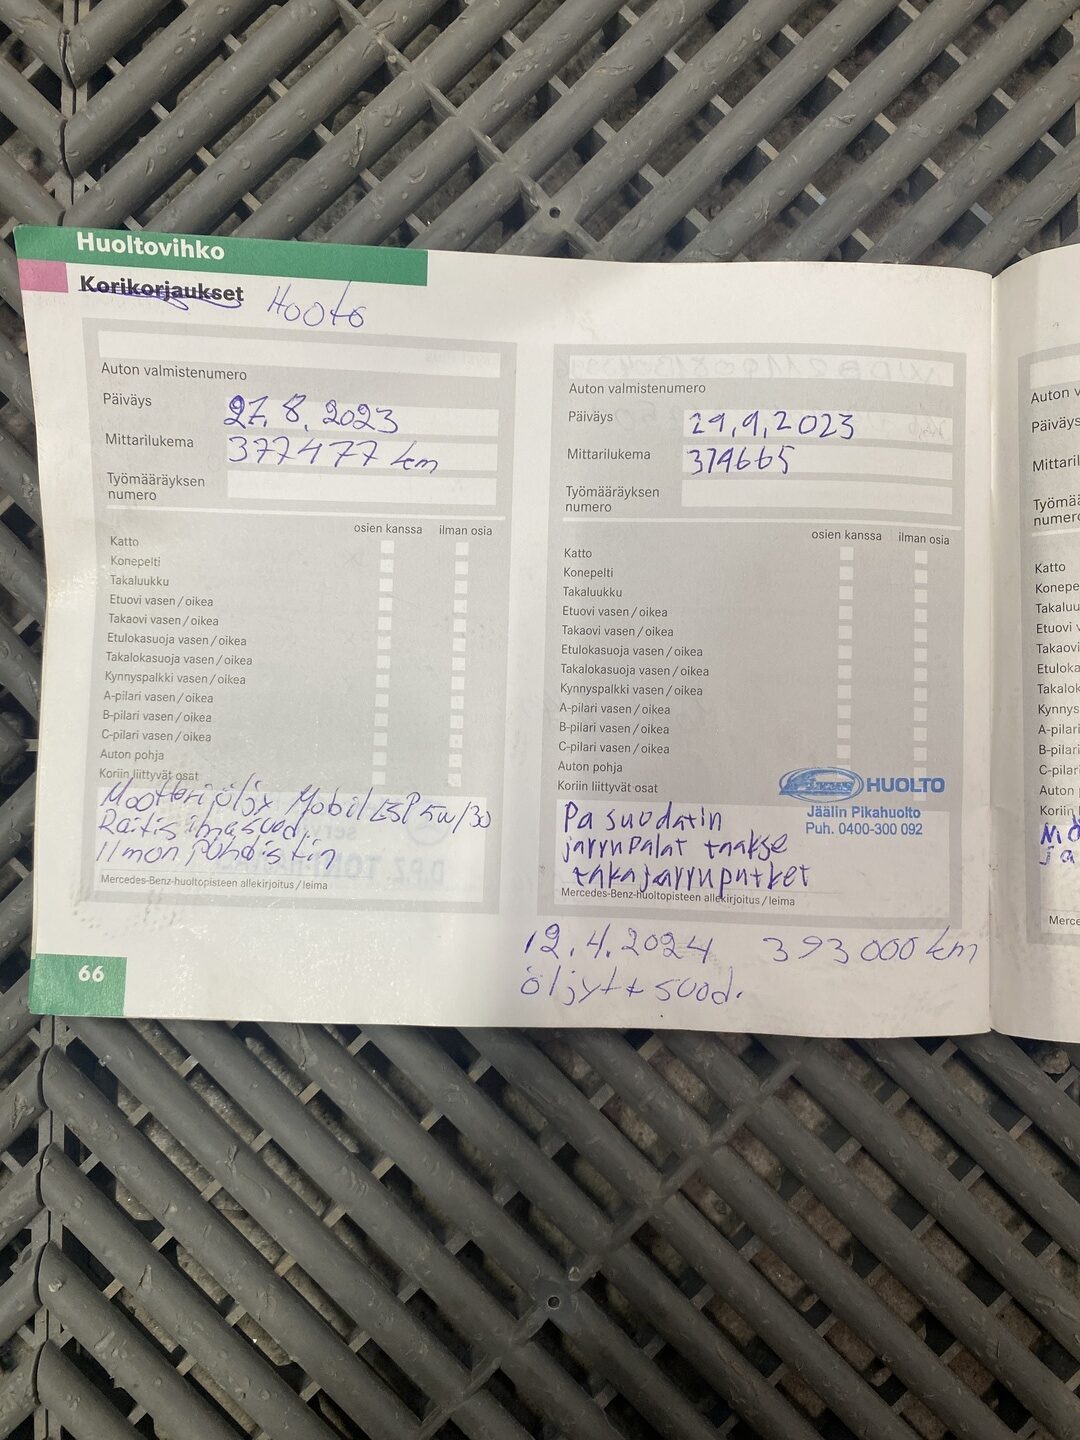 Huoltovihko
Korikorjaukset Huolto
Auton valmistenumero
Päiväys 27.8.2023
Mittarilukema 377477 km
Työmääräyksen
numero
osien kanssa ilman osia
Katto
Konepelti
Takaluukku
Etuovi vasen / oikea
Takaovi vasen / oikea
Etulokasuoja vasen / oikea
Takalokasuoja vasen / oikea
Kynnyspalkki vasen / oikea
A-pilari vasen / oikea
B-pilari vasen / oikea
C-pilari vasen / oikea
Auton pohja
Koriin liittyvät osat
Moottoriöljy Mobil ESP 5w/30
Raitisilmasuod.
Ilmonpuhdistin
Mercedes-Benz-huoltopisteen allekirjoitus / leima
66
Auton valmistenumero
Päiväys 29.9.2023
Mittarilukema 379665
Työmääräyksen
numero
osien kanssa ilman osia
Katto
Konepelti
Takaluukku
Etuovi vasen / oikea
Takaovi vasen / oikea
Etulokasuoja vasen / oikea
Takalokasuoja vasen / oikea
Kynnyspalkki vasen / oikea
A-pilari vasen / oikea
B-pilari vasen / oikea
C-pilari vasen / oikea
Auton pohja
Koriin liittyvät osat
HUOLTO
Jäälin Pikahuolto
Puh. 0400-300 092
Pa suodatin
jarrupalat taakse
takajarruputket
Mercedes-Benz-huoltopisteen allekirjoitus / leima
12.4.2024 393000 km
öljyt + suod.
Auton v
Päiväys
Mittaril
Työmää
numero
Katto
Konepe
Takaluu
Etuovi v
Takaovi
Etuloka
Takalok
Kynnys
A-pilari
B-pilari
C-pilari
Auton p
Koriin l
Merce